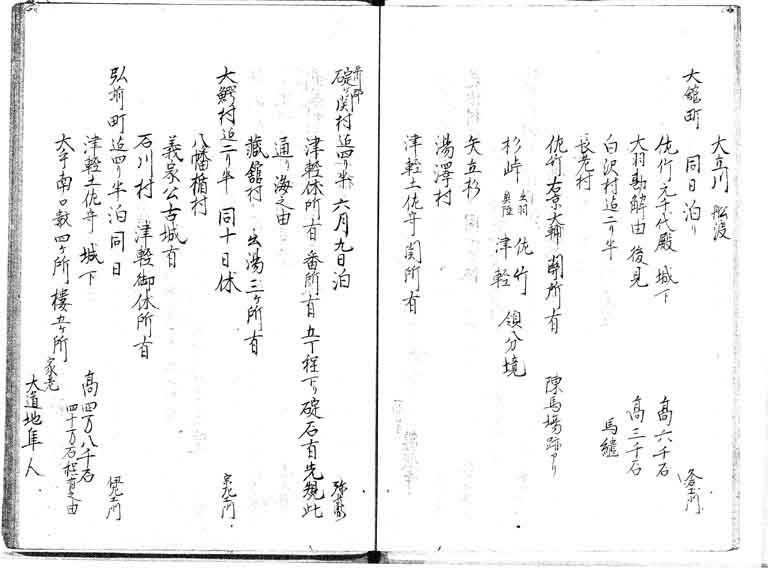 大立川 舩渡
大舘町 同日泊り
佐竹元千代殿 城下 高六千石
大羽勘解由 後見 高三千石
白沢村迠二り半 馬継
長走村
佐竹右京大輔 関所有 陳馬場跡アリ
杉峠 出羽 奥陸 佐竹 津軽 領分境
矢立杉
湯澤村
津軽土佐守 関所有
碇ヶ関村迠四り半 六月九日泊
津軽休所有 番所有 五丁程下り碇石有先規此
通り海之由
蔵舘村 出湯三ヶ所有
大鰐村迠二り半 同十日休
八幡楯村
義家公古城有
石川村 津軽御休所有
弘前町迠四り半 泊 同日
津軽土佐守 城下 高四万八千石 四十万石程有之由
大手南口数四ヶ所 櫓五ヶ所 家老 大道地隼人